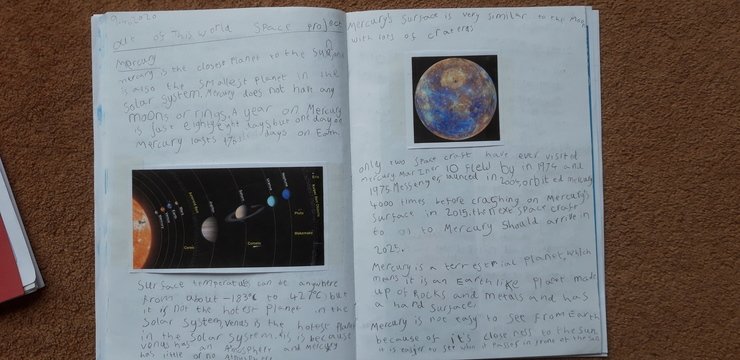 Out of This World Space Project
Mercury
mercury is the closest Planet to the Sun and
is also the smallest Planet in the
Solar system. Mercury does not have any
moons or rings. A year on Mercury
is Just eighty eight days but one day on
Mercury lasts 176 days on Earth.
Surface temperatures can be anywhere
from about -183°C to 427°C but
it is not the hotest planet in the
Solar System, venus is the hotest Planet
in the Solar System, this is because
venus has an Atmosphere and Mercury
has little or no atmosphere
Mercury's Surface is very similar to the moon
with lots of craters
only two Space craft have ever visited
mercury Mariner 10 flew by in 1974 and
1975 Messenger launced in 2004, orbited mercury
4000 times before crashing on Mercury's
Surface in 2015. the next Space craft
to go to Mercury Should arrive in
2025.
Mercury is a terrestrial planet, which
means it is an Earth like planet made
up of Rocks and metals and has
a hard Surface.
Mercury is not easy to see from Earth
because of it's closeness to the sun.
it is easier to see when it passes in front of the sun